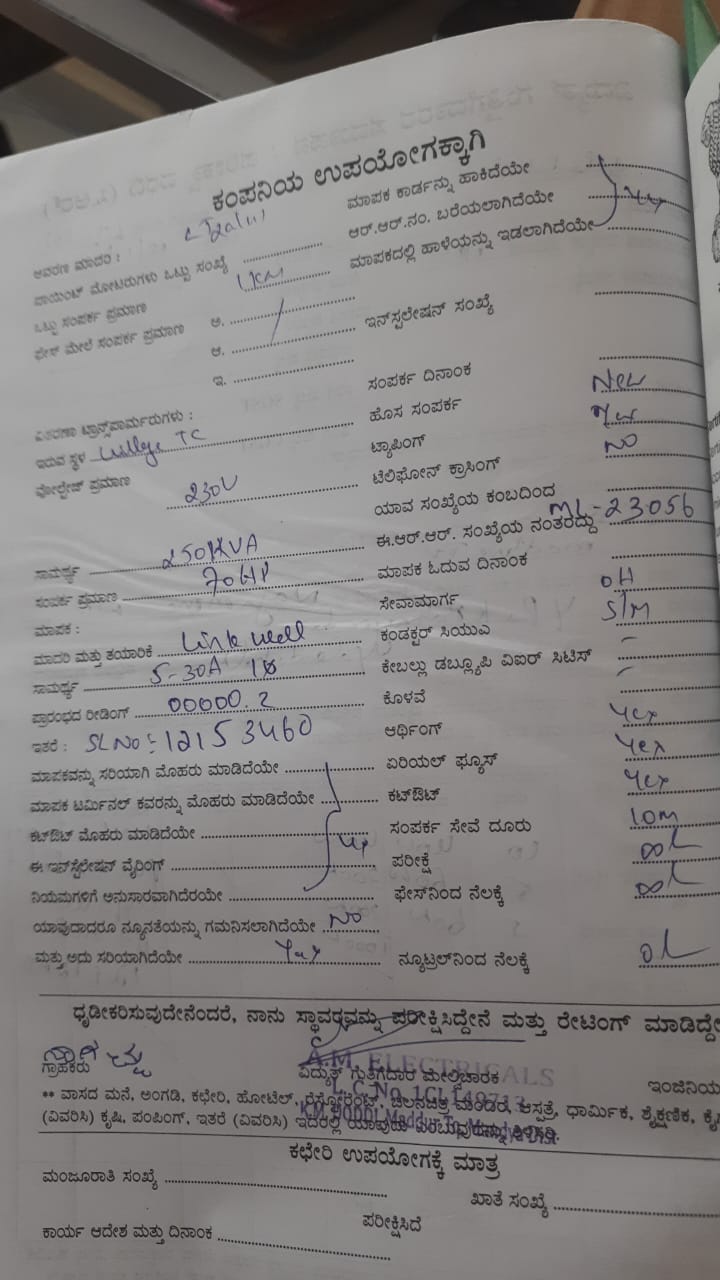 ಕಂಪನಿಯ ಉಪಯೋಗಕ್ಕಾಗಿ
ಆವರಣ ಮಾದರಿ :
ಪಾಯಿಂಟ್ ಮೋಟರುಗಳು ಒಟ್ಟು ಸಂಖ್ಯೆ
ಒಟ್ಟು ಸಂಪರ್ಕ ಪ್ರಮಾಣ 1 KW
ಫೇಸ್ ಮೇಲೆ ಸಂಪರ್ಕ ಪ್ರಮಾಣ ಅ.
ಆ.
ಇ.
ವಿತರಣಾ ಟ್ರಾನ್ಸ್‌ಪಾರ್ಮರುಗಳು :
ಇರುವ ಸ್ಥಳ Village TC
ವೋಲ್ಟೇಜ್ ಪ್ರಮಾಣ 230V
ಸಾಮರ್ಥ್ಯ 250KVA
ಸಂಪರ್ಕ ಪ್ರಮಾಣ 70HP
ಮಾಪಕ :
ಮಾದರಿ ಮತ್ತು ತಯಾರಿಕೆ Link well
ಸಾಮರ್ಥ್ಯ 5-30A 1Ø
ಪ್ರಾರಂಭದ ರೀಡಿಂಗ್ 00000.2
ಇತರೆ : SL No :- 12153460
ಮಾಪಕವನ್ನು ಸರಿಯಾಗಿ ಮೊಹರು ಮಾಡಿದೆಯೇ
ಮಾಪಕ ಟರ್ಮಿನಲ್ ಕವರನ್ನು ಮೊಹರು ಮಾಡಿದೆಯೇ
ಕಟ್‌ಔಟ್ ಮೊಹರು ಮಾಡಿದೆಯೇ
ಈ ಇನ್‌ಸ್ಟಲೇಷನ್ ವೈರಿಂಗ್
ನಿಯಮಗಳಿಗೆ ಅನುಸಾರವಾಗಿದೆರಯೇ
ಯಾವುದಾದರೂ ನ್ಯೂನತೆಯನ್ನು ಗಮನಿಸಲಾಗಿದೆಯೇ No
ಮತ್ತು ಅದು ಸರಿಯಾಗಿದೆಯೇ Yes
ಮಾಪಕ ಕಾರ್ಡನ್ನು ಹಾಕಿದೆಯೇ
ಆರ್.ಆರ್.ನಂ. ಬರೆಯಲಾಗಿದೆಯೇ
ಮಾಪಕದಲ್ಲಿ ಹಾಳೆಯನ್ನು ಇಡಲಾಗಿದೆಯೇ
ಇನ್‌ಸ್ಟಲೇಷನ್ ಸಂಖ್ಯೆ
ಸಂಪರ್ಕ ದಿನಾಂಕ
ಹೊಸ ಸಂಪರ್ಕ New
ಟ್ಯಾಪಿಂಗ್
ಟೆಲಿಫೋನ್ ಕ್ರಾಸಿಂಗ್ NO
ಯಾವ ಸಂಖ್ಯೆಯ ಕಂಬದಿಂದ
ಈ.ಆರ್.ಆರ್. ಸಂಖ್ಯೆಯ ನಂತರದ್ದು ML-23056
ಮಾಪಕ ಓದುವ ದಿನಾಂಕ
ಸೇವಾಮಾರ್ಗ OH
ಕಂಡಕ್ಟರ್ ಸಿಯುವಿ S/M
ಕೇಬಲ್ಲು ಡಬ್ಲ್ಯೂಪಿ ವಿಐರ್ ಸಿಟಿಸ್ -
ಕೊಳವೆ -
ಆರ್ಥಿಂಗ್ Yes
ಏರಿಯಲ್ ಫ್ಯೂಸ್ Yes
ಕಟ್‌ಔಟ್ Yes
ಸಂಪರ್ಕ ಸೇವೆ ದೂರು 10M
ಪರೀಕ್ಷೆ
ಫೇಸ್‌ನಿಂದ ನೆಲಕ್ಕೆ
ನ್ಯೂಟ್ರಲ್‌ನಿಂದ ನೆಲಕ್ಕೆ
ಧೃಡೀಕರಿಸುವುದೇನೆಂದರೆ, ನಾನು ಸ್ಥಾವರವನ್ನು ಪರೀಕ್ಷಿಸಿದ್ದೇನೆ ಮತ್ತು ರೇಟಿಂಗ್ ಮಾಡಿದ್ದೇ
ಗ್ರಾಹಕರು ವಿದ್ಯುತ್ ಗುತ್ತಿಗೆದಾರ ಮೇಲ್ವಿಚಾರಕ ಇಂಜಿನಿಯ
A.M. ELECTRICALS
** ವಾಸದ ಮನೆ, ಅಂಗಡಿ, ಕಛೇರಿ, ಹೋಟೆಲ್, ರೆಸ್ಟೋರೆಂಟ್, ಚಲನಚಿತ್ರ ಮಂದಿರ, ಆಸ್ಪತ್ರೆ, ಧಾರ್ಮಿಕ, ಶೈಕ್ಷಣಿಕ, ಕೈ
(ವಿವರಿಸಿ) ಕೃಷಿ, ಪಂಪಿಂಗ್, ಇತರೆ (ವಿವರಿಸಿ) ಇದರಲ್ಲಿ ಯಾವುದು ಎಂಬುವುದನ್ನು ತಿಳಿಸಿರಿ.
ಕಛೇರಿ ಉಪಯೋಗಕ್ಕೆ ಮಾತ್ರ
ಮಂಜೂರಾತಿ ಸಂಖ್ಯೆ ಖಾತೆ ಸಂಖ್ಯೆ
ಪರೀಕ್ಷಿಸಿದೆ
ಕಾರ್ಯ ಆದೇಶ ಮತ್ತು ದಿನಾಂಕ